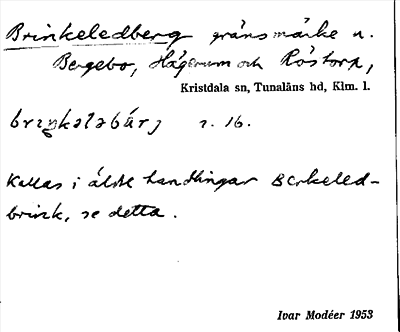 Brinkeledberg gränsmärke n.
Bergebo, Hägerum och Röstorp,
Kristdala sn, Tunaläns hd, Klm. l.
r. 16.
Kallas i äldre handlingar Berkeled-
brink, se detta.
Ivar Modéer 1953